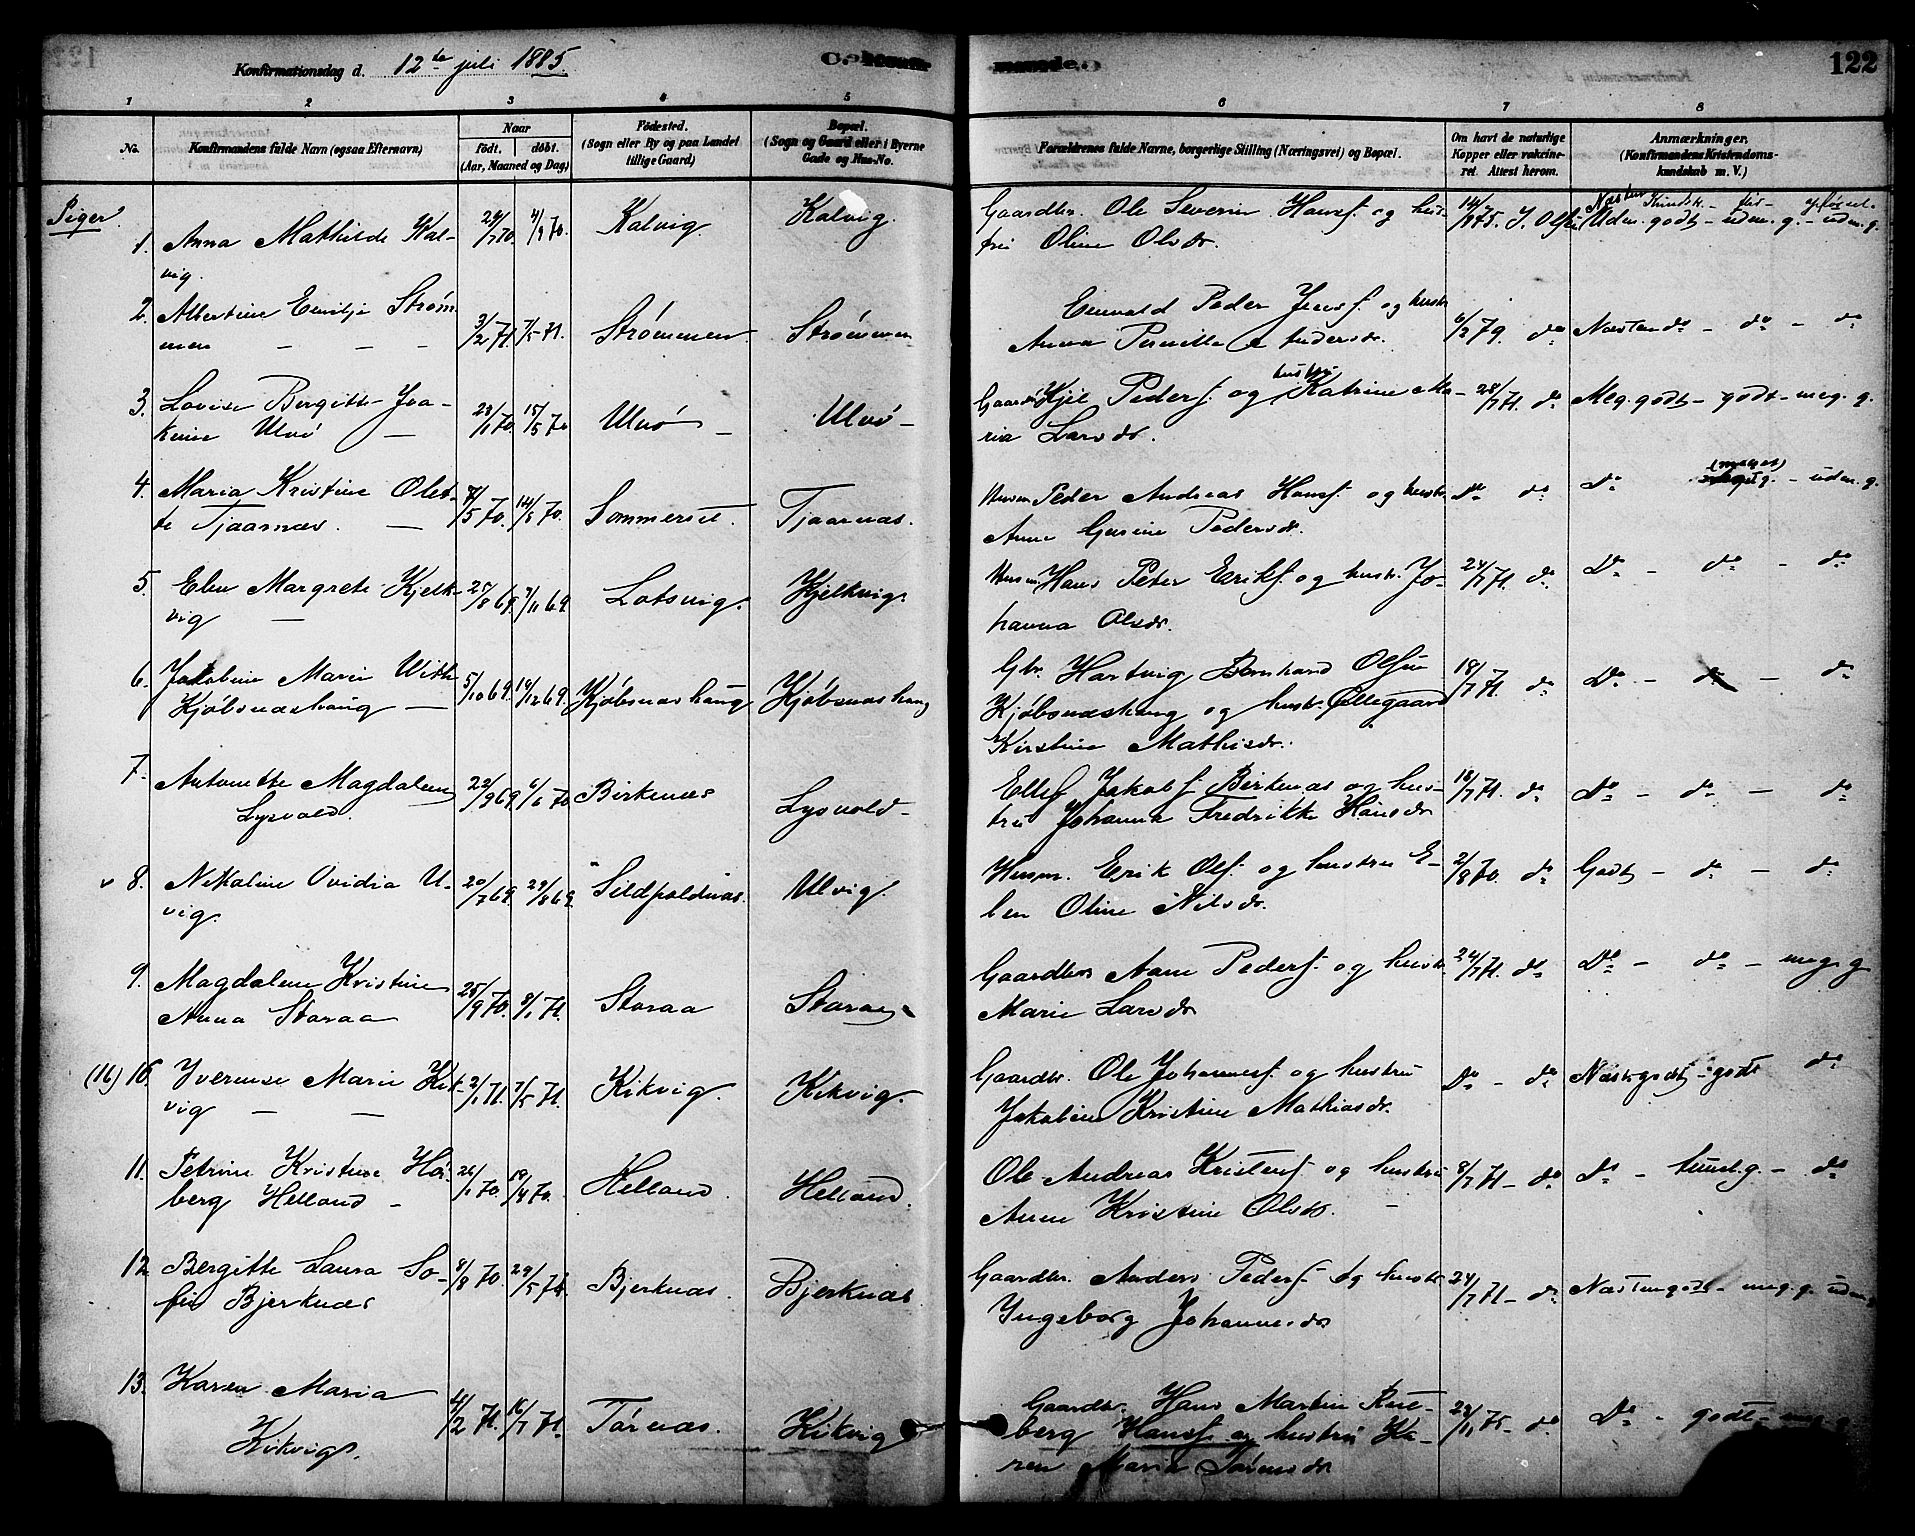 Konfirmationsdag d. 12te juli 1885.
122
1 2 3 4 5 6 7 8
No.
Konfirmandens fulde Navn (ogsaa Efternavn)
Naar
født. døbt.
(Aar, Maaned og Dag)
Fødested.
(Sogn eller By og paa Landet
tillige Gaard)
Bopæl.
(Sogn og Gaard eller i Byerne
Gade og Hus-No.
Forældrenes fulde Navne, borgerlige Stilling (Næringsvei) og Bopæl.
Om havt de naturlige
Kopper eller vakcine-
ret. Attest herom.
Anmærkninger,
(Konfirmandens Kristendoms-
kundskab m. V.)
Piger.
1. Anna Mathilde Kal-
vig.
4/9 70. Kalvig Kalvig.
Gaardbr. Ole Severin Hansf. og hus-
tru Oline Olsdr.
14/7 875. J. Olsen
Udm. godt - udm. g. - udm. g.
2. Albertine Emilje Strøm
men - - -
3/2 71. 7/5 71. Strømmen Strømmen
Enevold Peder Jensf. og hustr
Anna Pernille Andersdr.
6/2 79. do Næsten do - do - do
3. Lovise Bergitte Joa-
kime Ulvø -
23/1 70. 15/5 70 Ulvø - Ulvø -
Gaardbr Kjel Pedersf. og hustru Katrine Ma-
ria Larsdr.
28/7 71. do Meg. godt - godt - meg. g.
4. Maria Kristine Olet-
te Tjaarnæs. -
7/5 70. 14/8 70. Sommerset. Tjaarnæs.
Husm Peder Andreas Hansf. og hustr
Anne Gurine Pedersdr.
Do do Do (meget) g. - udm. g.
5. Elen Margrete Kjelk-
vig -
25/8 69. 7/11 69. Lotsvig. Kjelkvig.
Husm. Hans Peter Eriksf. og hustr. Jo-
hanna Olsdr.
24/7 71. do Do - do - do
6. Jakobine Marie With
Kjøbsnæshaug -
5/10 69. 19/12 69. Kjøbsnæshaug Kjøbsnæshaug
Gbr. Hartvig Bernhard Olsen
Kjøbsnæshaug og hustr. Øllegaard
Kirstine Mathisdr.
18/7 71. do Do - do - do
7. Antonette Magdalena
Lysvold.
22/9 69 6/1 70 Birkenæs Lysvold -
Ellef Jakobsf Birkenæs og hus-
tru Johanna Fredrikke Hansdr
18/7 71. do Do - do - do
v 8. Nikoline Ovidia U-
vig.
20/7 69 29/8 69. Sildpoldnæs. Ulvig.
Husm. Erik Olsf. og hustru E-
len Oline Nilsdr.
2/8 70. do Godt - do - do
9. Magdalene Kristine
Anna Storaa
25/9 70. 8/1 71. Storaa Storaa
Gaardbr Aane Pedersf. og hustr
Marie Larsdr
24/7 71. do Do - do - meg. g
(16) 10. Iverense Marie Kik-
vig - -
2/1 71. 7/5 71. Kikvig. Kikvig.
Gaardbr. Ole Johannesf. og hustru
Jakobine Kristine Mathiasdr.
Do - do Næst. godt - godt do
11. Petrine Kristine Hol-
berg Helland -
26/1 70. 19/4 70. Helland. Helland.
Ole Andreas Kristensf. og hustru
Anne Kristine Olsdr. -
8/7 71 - do Do - temel. g. - do
12. Bergitte Laura So-
fie Bjerknæs
8/8 70. 29/5 71. Bjerknæs. Bjerknæs
Gaardbr. Anders Pedersf. og hustr
Ingeborg Johannesdr
24/7 71 - do Næsten godt - meg. g. udm. g
13. Karen Maria
Kikvig.
4/2 71. 16/7 71. Tørnæs. Kikvig
Gaardbr. Hans Martin Rut-
berg Hansf og hustru Ka-
ren Maria Sørensdr
23/11 75 - do Do - godt - meg. g